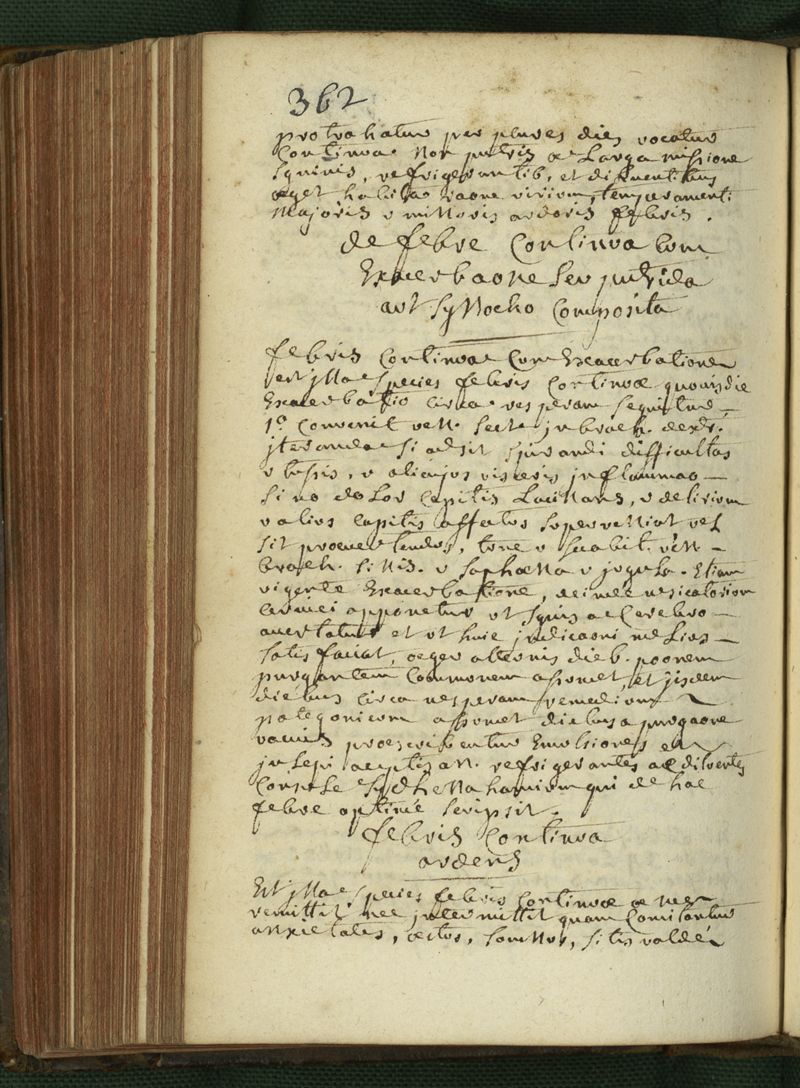 362
protrahatur per plures dies vocatur
Continua non putris ac Larga missione
sguinis, refrigerantib, et diluentibus
eget habita raone virium, temperamenti
Majoris v minoris ardoris febris.
de febre Continua cum
Exacerbaone seu putrida
aut synocho composita
febris Continua cum Exacerbatione
est illa species febris Continuæ quovis die
Exacerbatio circa vesperam sequitur
1o Convenit ven. sect. in brach. dext.
iteranda si adsit spirandi difficultas
v tussis, v alicujus visceris inflammao
si vo dolor Capitis Lancinans, v delirium
v alius Capitis affectus superveniat vel
sit prœvertendus, tunc v scabit. ven.
brach. sinis. v saphœna v jugula. Etiam
vigente Exacerbatione, deinde vesicatorium
cervici apponetur ut sguis a Cerebro
avertatur et ut huic indicaoni melius
satis faciat, œger alternis dieb. poonem
purgantem Communem assumet, et iisdem
diebus circa vesperam remedium
paregoricum assumet diebus a purgaone
vacuis prœscribentur Emulsiones et
julepi ac ptisan. refrigerantes ac diluentes
Consule sydhenahamium qui de hac
febre optimè scripsit.
febris Continua
ardens
Est illa species febris Continuæ œ nec
remittit nec intermittit quam Comitantur
anxietates, œstus, somnus, sitis valdè